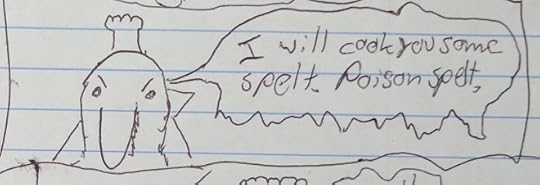 I will cook you some
spelt. Poison spelt.